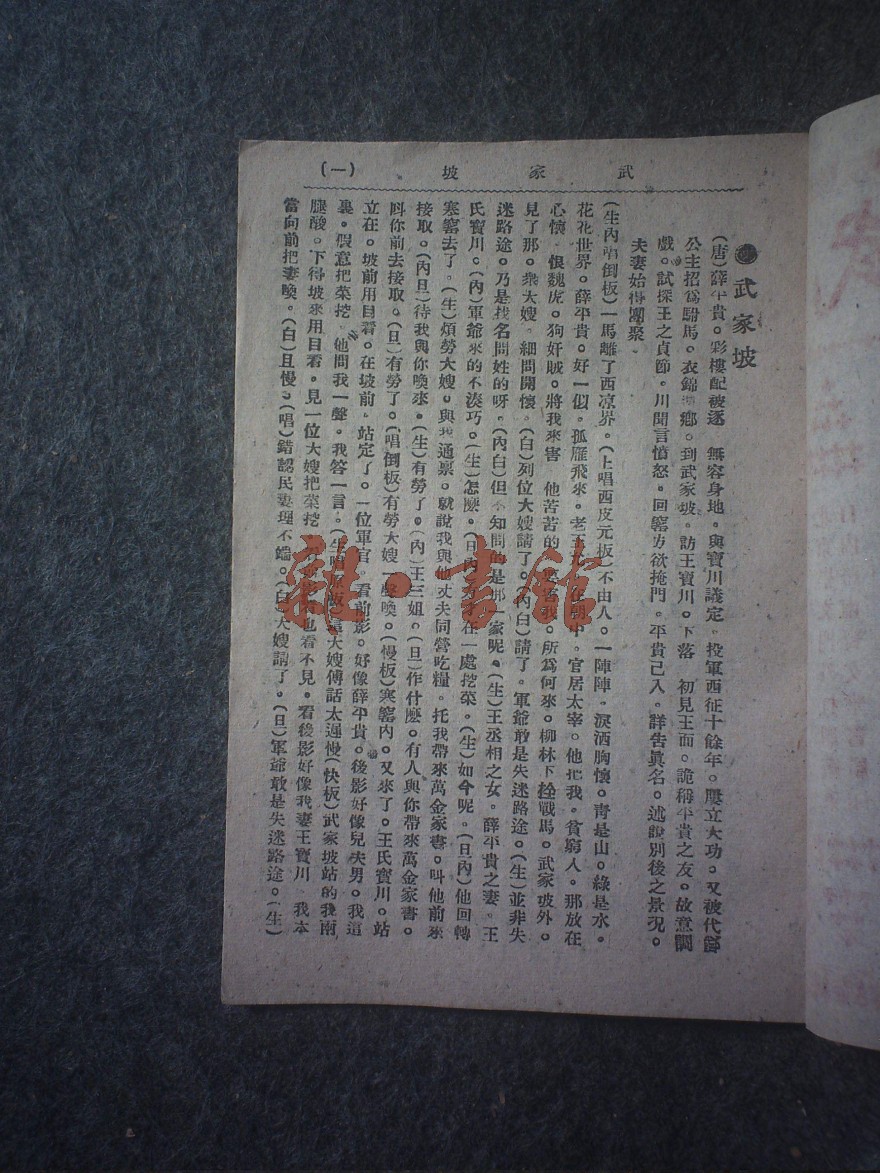 武家坡 (一)
武家坡
(唐)薛平貴。彩樓配被逐 無容身地。與寶川議定。投軍西征十餘年。屢立大功。又被代
公主招爲駙馬。衣錦 鄉。到武家坡。訪王寶川。下落 初見王面。詭稱平貴之友。故意調
戲。試探王之貞節。川聞言憤怒。回窰方欲掩門。平貴已入。詳告眞名。述說別後之景况。
夫妻始得團聚。
(生內唱倒板)一馬離了西凉界。(上唱西皮元板)不由人。一陣陣。淚洒胸懷。靑是山。綠是水。
花花世界。薛平貴。好一似。孤雁飛來。老王 在朝中。官居太宰。他把我。貧窮人。那放在
心懷 恨魏虎。狗奸賊。將我來害 他苦苦的 我。所爲何來。柳林下拴戰馬。武家坡外。
見了那。衆大嫂 細問開懷。(白)列位大嫂請了。(內白)請了。軍爺敢是失迷路途。(生)並非失
迷路途。乃是找名問姓的呀。(內白)但不知問的是那 家呢。(生)王丞相之女。薛平貴之妻。王
氏寶川。(內)軍爺來的不湊巧。(生)怎麽。(旦內) 才在一處挖菜。(生)如今呢。(旦內)他回轉
寒窰去了。(生)煩勞大嫂。與我通禀。就說我與他丈夫同營吃糧。托我帶來萬金家書。叫他前來
接取。(內旦)待我與你喚來。(生)有勞了。(內)王三姐。(旦)作什麽。有人與你帶來萬金家書。
叫你前去接取。(旦)有勞了。(唱倒板)有勞大嫂一聲喚。(慢板)寒窰內。又來了。王氏寶川。站
立在。坡前用目看。在坡前 站定了。一位軍官。看前影。好像薛平貴。後影好像兒夫男。我這
裏。假意把菜挖 他問我一聲。我答一言。(生唱原板)這大嫂傳話太遲慢(快板)武家坡站的我兩
腿酸。下得坡來用目看。見一位大嫂把菜挖 也看不見。看後影好像我妻王寶川 我本
當向前把妻喚。(白)且慢。(唱)錯認民妻理不端。(白)大嫂請了。(旦)軍爺敢是失迷路途。(生)
雜·書館